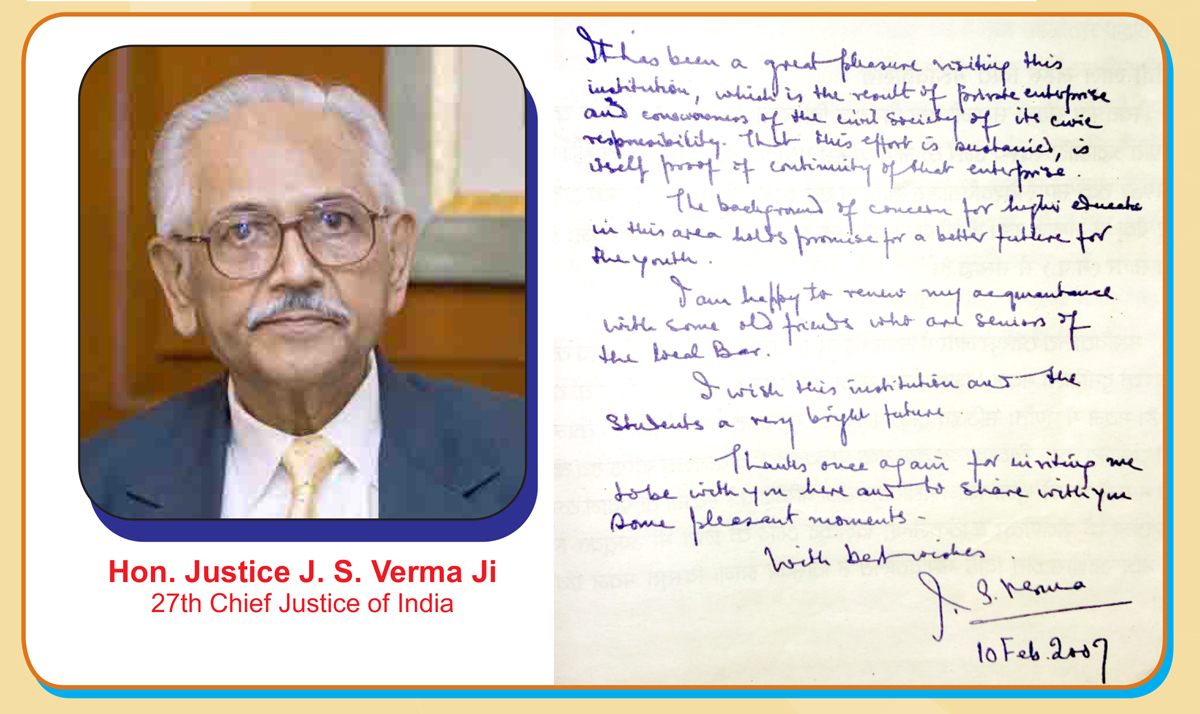 Hon. Justice J. S. Verma Ji
27th Chief Justice of India
It has been a great pleasure visiting this
institution, which is the result of private enterprise
and consciousness of the civil society of its civic
responsibility. That this effort is sustained, is
itself proof of continuity of that enterprise.
The background of concern for higher educatn
in this area holds promise for a better future for
the youth.
I am happy to renew my acquaintance
with some old friends who are seniors of
the local Bar.
I wish this institution and the
students a very bright future
Thanks once again for inviting me
to be with you here and to share with you
some pleasant moments -
With best wishes.
J. S. Verma
10 Feb. 2007